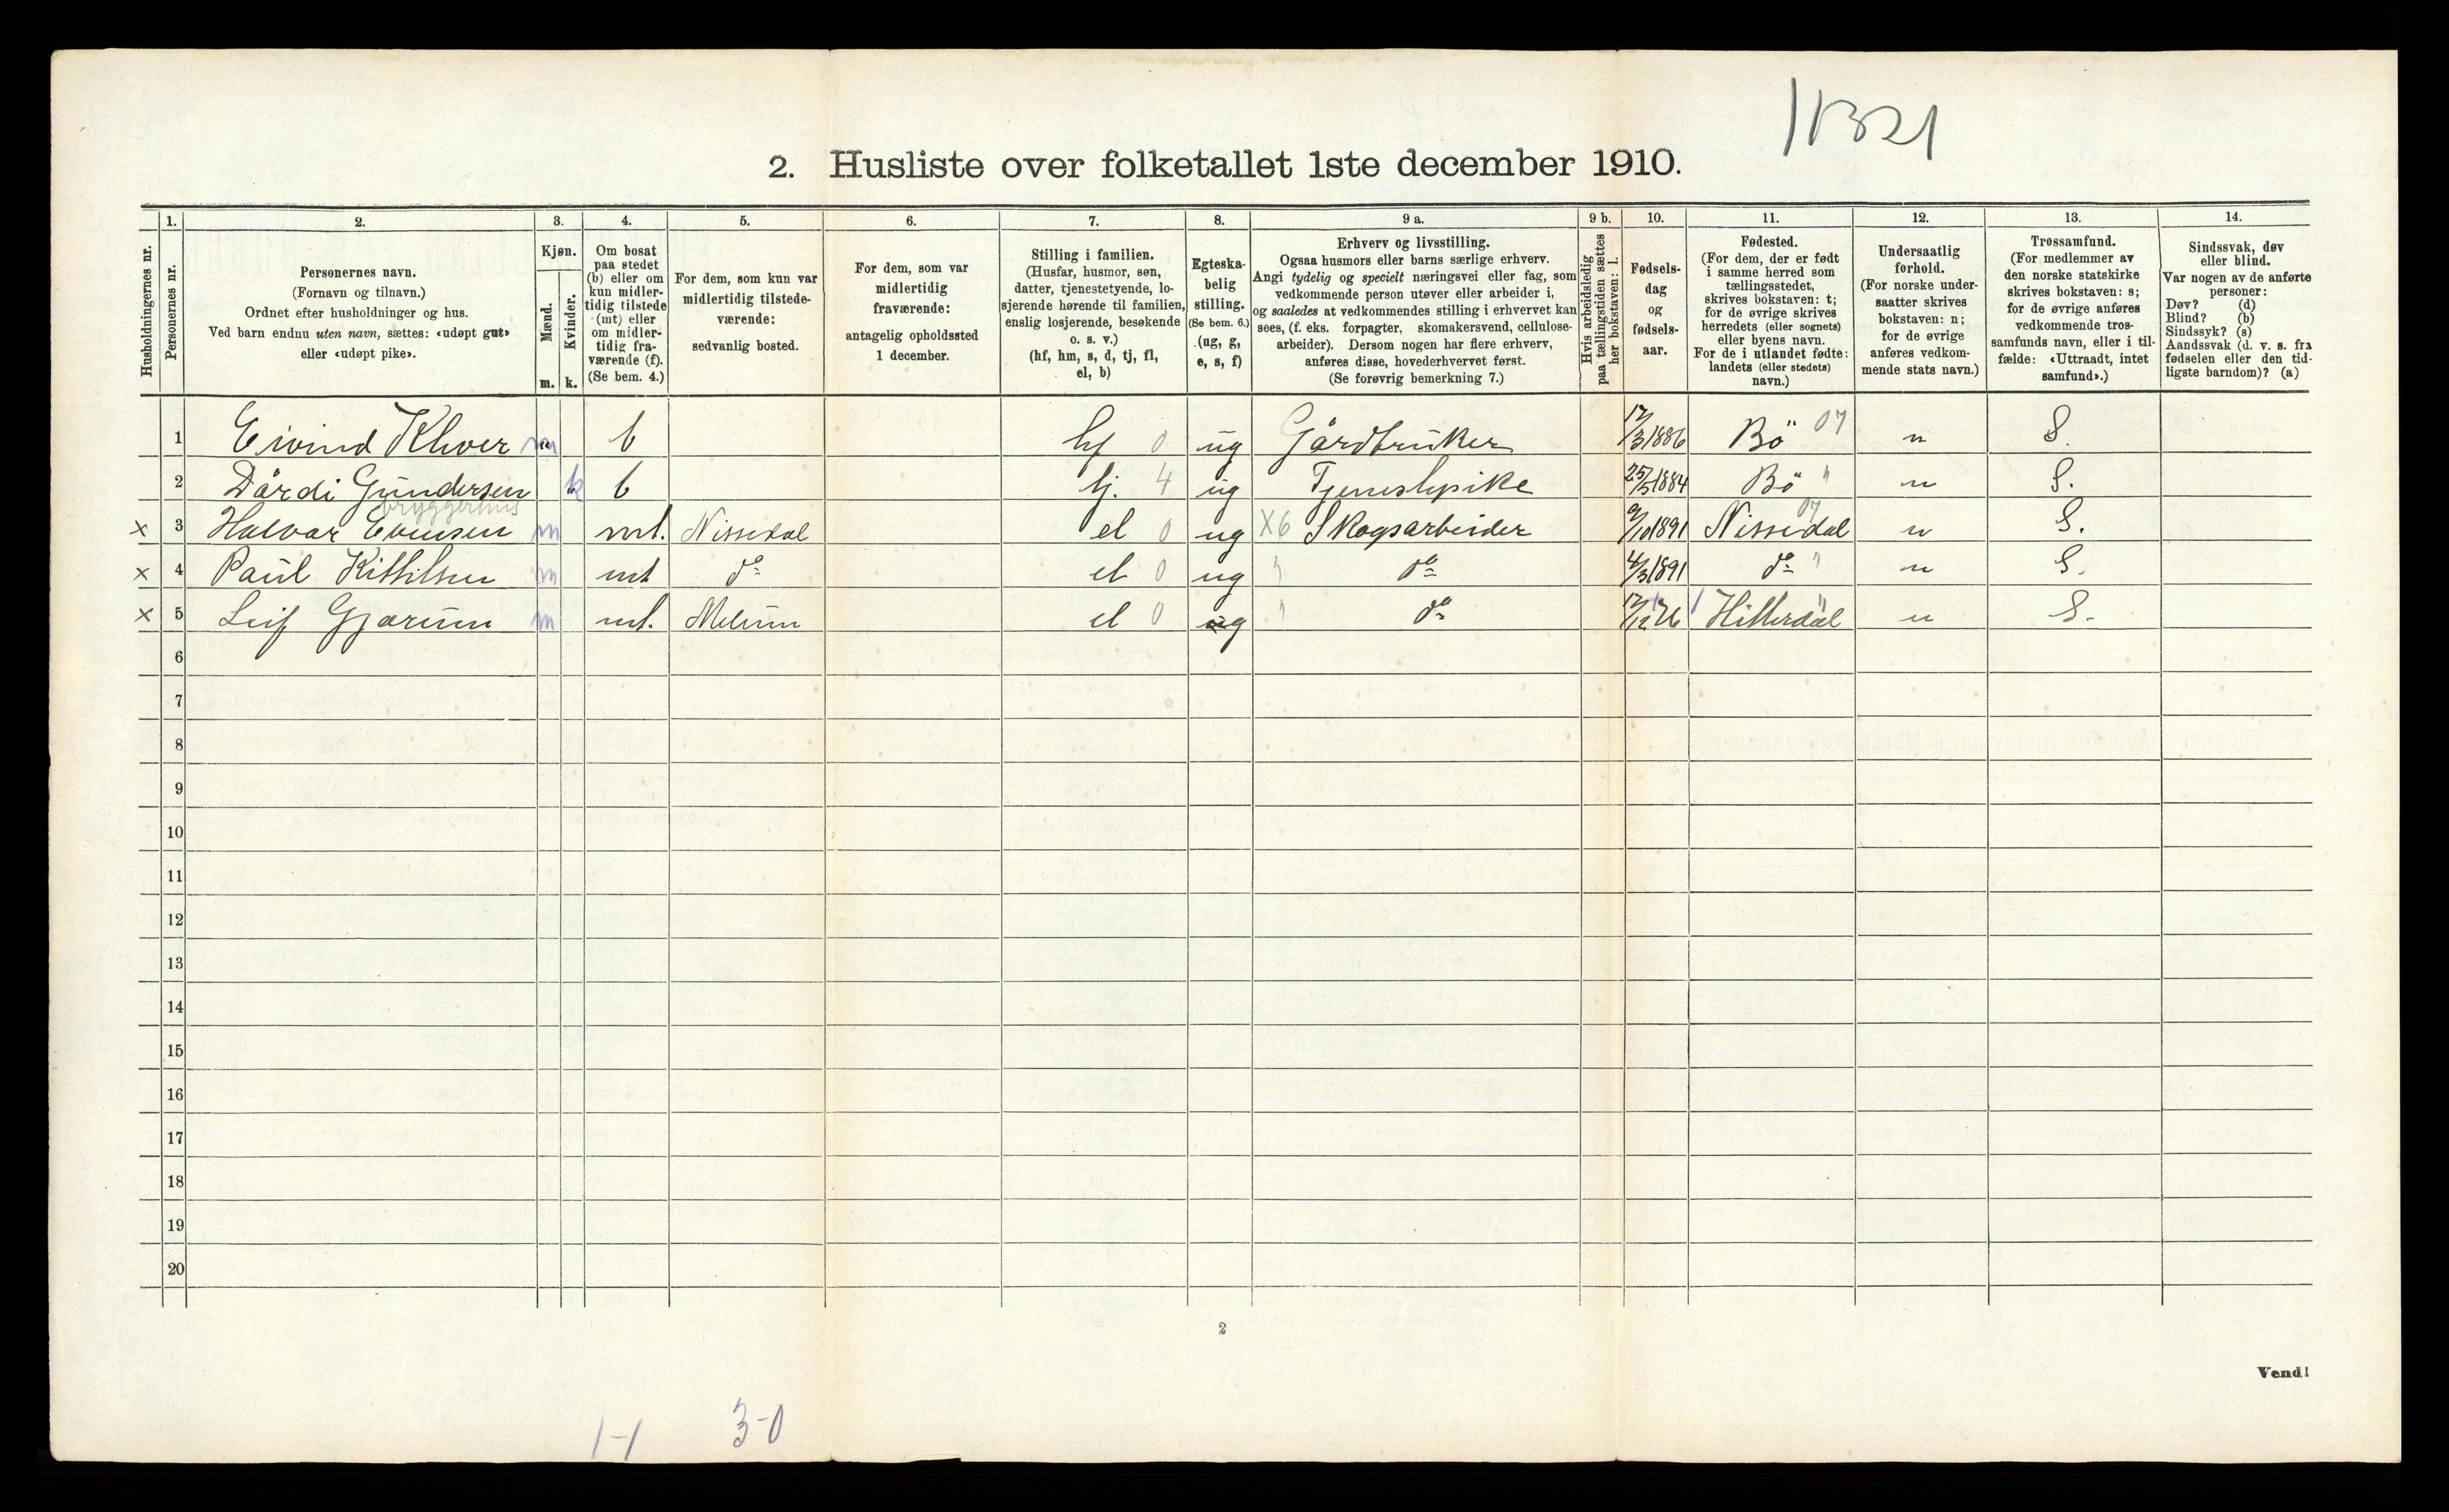 2. Husliste over folketallet 1ste december 1910.
Husholdningernes nr.
1.
Personernes nr.
2.
Personernes navn.
(Fornavn og tilnavn.)
Ordnet efter husholdninger og hus.
Ved barn endnu uten navn, sættes: «udøpt gut»
eller «udøpt pike».
3.
Kjøn.
Mænd.
Kvinder.
m. k.
4.
Om bosat
paa stedet
(b) eller om
kun midler-
tidig tilstede
(mt) eller
om midler-
tidig fra-
værende (f).
(Se bem. 4.)
5.
For dem, som kun var
midlertidig tilstede-
værende:
sedvanlig bosted.
6.
For dem, som var
midlertidig
fraværende:
antagelig opholdssted
1 december.
7.
Stilling i familien.
(Husfar, husmor, søn,
datter, tjenestetyende, lo-
sjerende hørende til familien,
enslig losjerende, besøkende
o. s. v.)
(hf, hm, s, d, tj, fl,
el, b)
8.
Egteska-
belig
stilling.
(Se bem. 6.)
(ug, g,
e, s, f)
9 a.
Erhverv og livsstilling.
Ogsaa husmors eller barns særlige erhverv.
Angi tydelig og specielt næringsvei eller fag, som
vedkommende person utøver eller arbeider i,
og saaledes at vedkommendes stilling i erhvervet kan
sees, (f. eks. forpagter, skomakersvend, cellulose-
arbeider). Dersom nogen har flere erhverv,
anføres disse, hovederhvervet først.
(Se forøvrig bemerkning 7.)
9 b.
Hvis arbeidsledig
paa tællingstiden sættes
her bokstaven: l.
10.
Fødsels-
dag
og
fødsels-
aar.
11.
Fødested.
(For dem, der er født
i samme herred som
tællingsstedet,
skrives bokstaven: t;
for de øvrige skrives
herredets (eller sognets)
eller byens navn.
For de i utlandet fødte:
landets (eller stedets)
navn.)
12.
Undersaatlig
forhold.
(For norske under-
saatter skrives
bokstaven: n;
for de øvrige
anføres vedkom-
mende stats navn.)
13.
Trossamfund.
(For medlemmer av
den norske statskirke
skrives bokstaven: s;
for de øvrige anføres
vedkommende tros-
samfunds navn, eller i til-
fælde: «Uttraadt, intet
samfund».)
14.
Sindssvak, døv
eller blind.
Var nogen av de anførte
personer:
Døv? (d)
Blind? (b)
Sindssyk? (s)
Aandssvak (d. v. s. fra
fødselen eller den tid-
ligste barndom)? (a)
1 Eivind Klever m b hf 0 ug Gårdbruker 17/3 1886 Bö 07 n S.
2 Dårdi Gundersen k b tj. 4 ug Tjenestepike 25/5 1884 Bö " n S.
bryggerhus
x 3 Halvar Evensen m mt. Nissedal el 0 ug X6 Skogsarbeider 9/10 1891 Nissedal 07 n S.
x 4 Paul Kittilsen m mt do el 0 ug " do 4/3 1891 do " n S.
x 5 Leif Gjærum m mt. Melum el 0 ug " do 17/12 76 Hitterdal " n S.
6
7
8
9
10
11
12
13
14
15
16
17
18
19
20
2
Vend!
1-1 3-0